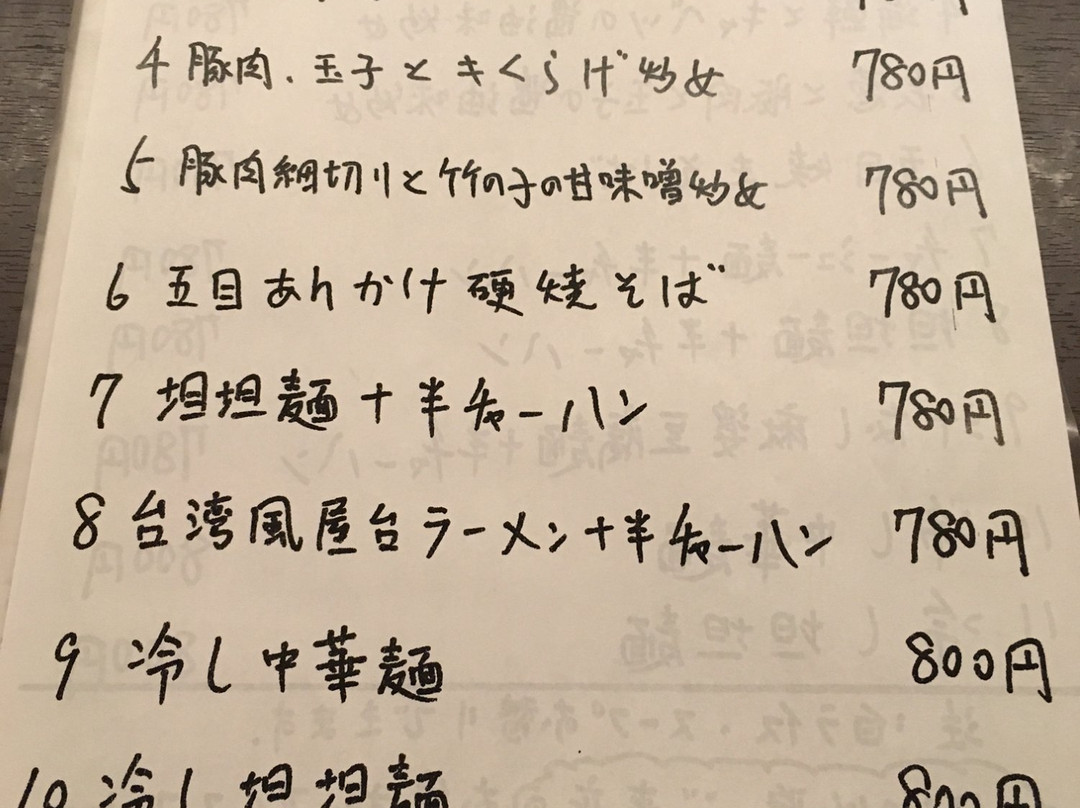 4 豚肉、玉子ときくらげ炒め 780円
5 豚肉細切りと竹の子の甘味噌炒め 780円
6 五目あんかけ硬焼そば 780円
7 坦坦麺+半チャーハン 780円
8 台湾風屋台ラーメン+半チャーハン 780円
9 冷し中華麺 800円
10 冷し坦坦麺 800円